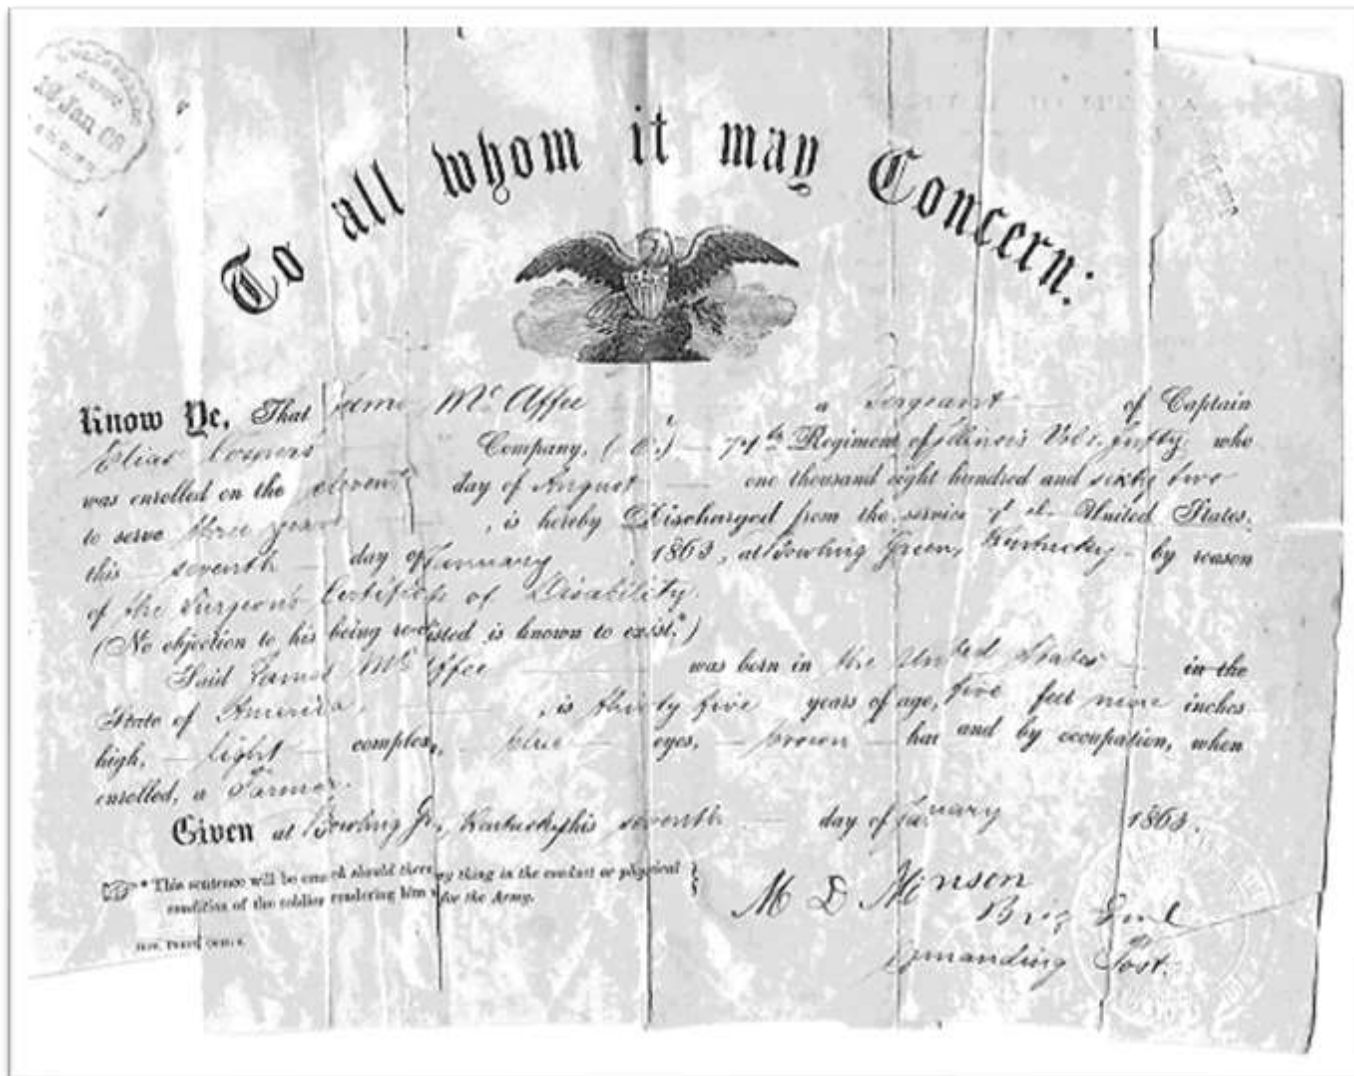 19 Jan 08
To all whom it may Concern:
Know Ye, That James McAffee a Sergeant of Captain
Elias Company, (C.) 74th Regiment of Illinois Vols. Infty. who
was enrolled on the eleventh day of August one thousand eight hundred and sixty two
to serve three years , is hereby Discharged from the service of the United States,
this seventh day of January , 1863, at Bowling Green, Kentucky by reason
of the Surgeon's Certificate of Disability.
(No objection to his being reenlisted is known to exist.*)
Said James McAffee was born in the United States in the
State of America, , is thirty five years of age, five feet nine inches
high, light complex, blue eyes, brown hai and by occupation, when
enrolled, a Farmer.
Given at Bowling Gr, Kentucky this seventh day of January 1863.
* This sentence will be erased should there any thing in the conduct or physical
condition of the soldier rendering him for the Army.
M D Manson
Brig Genl
Commanding Post.